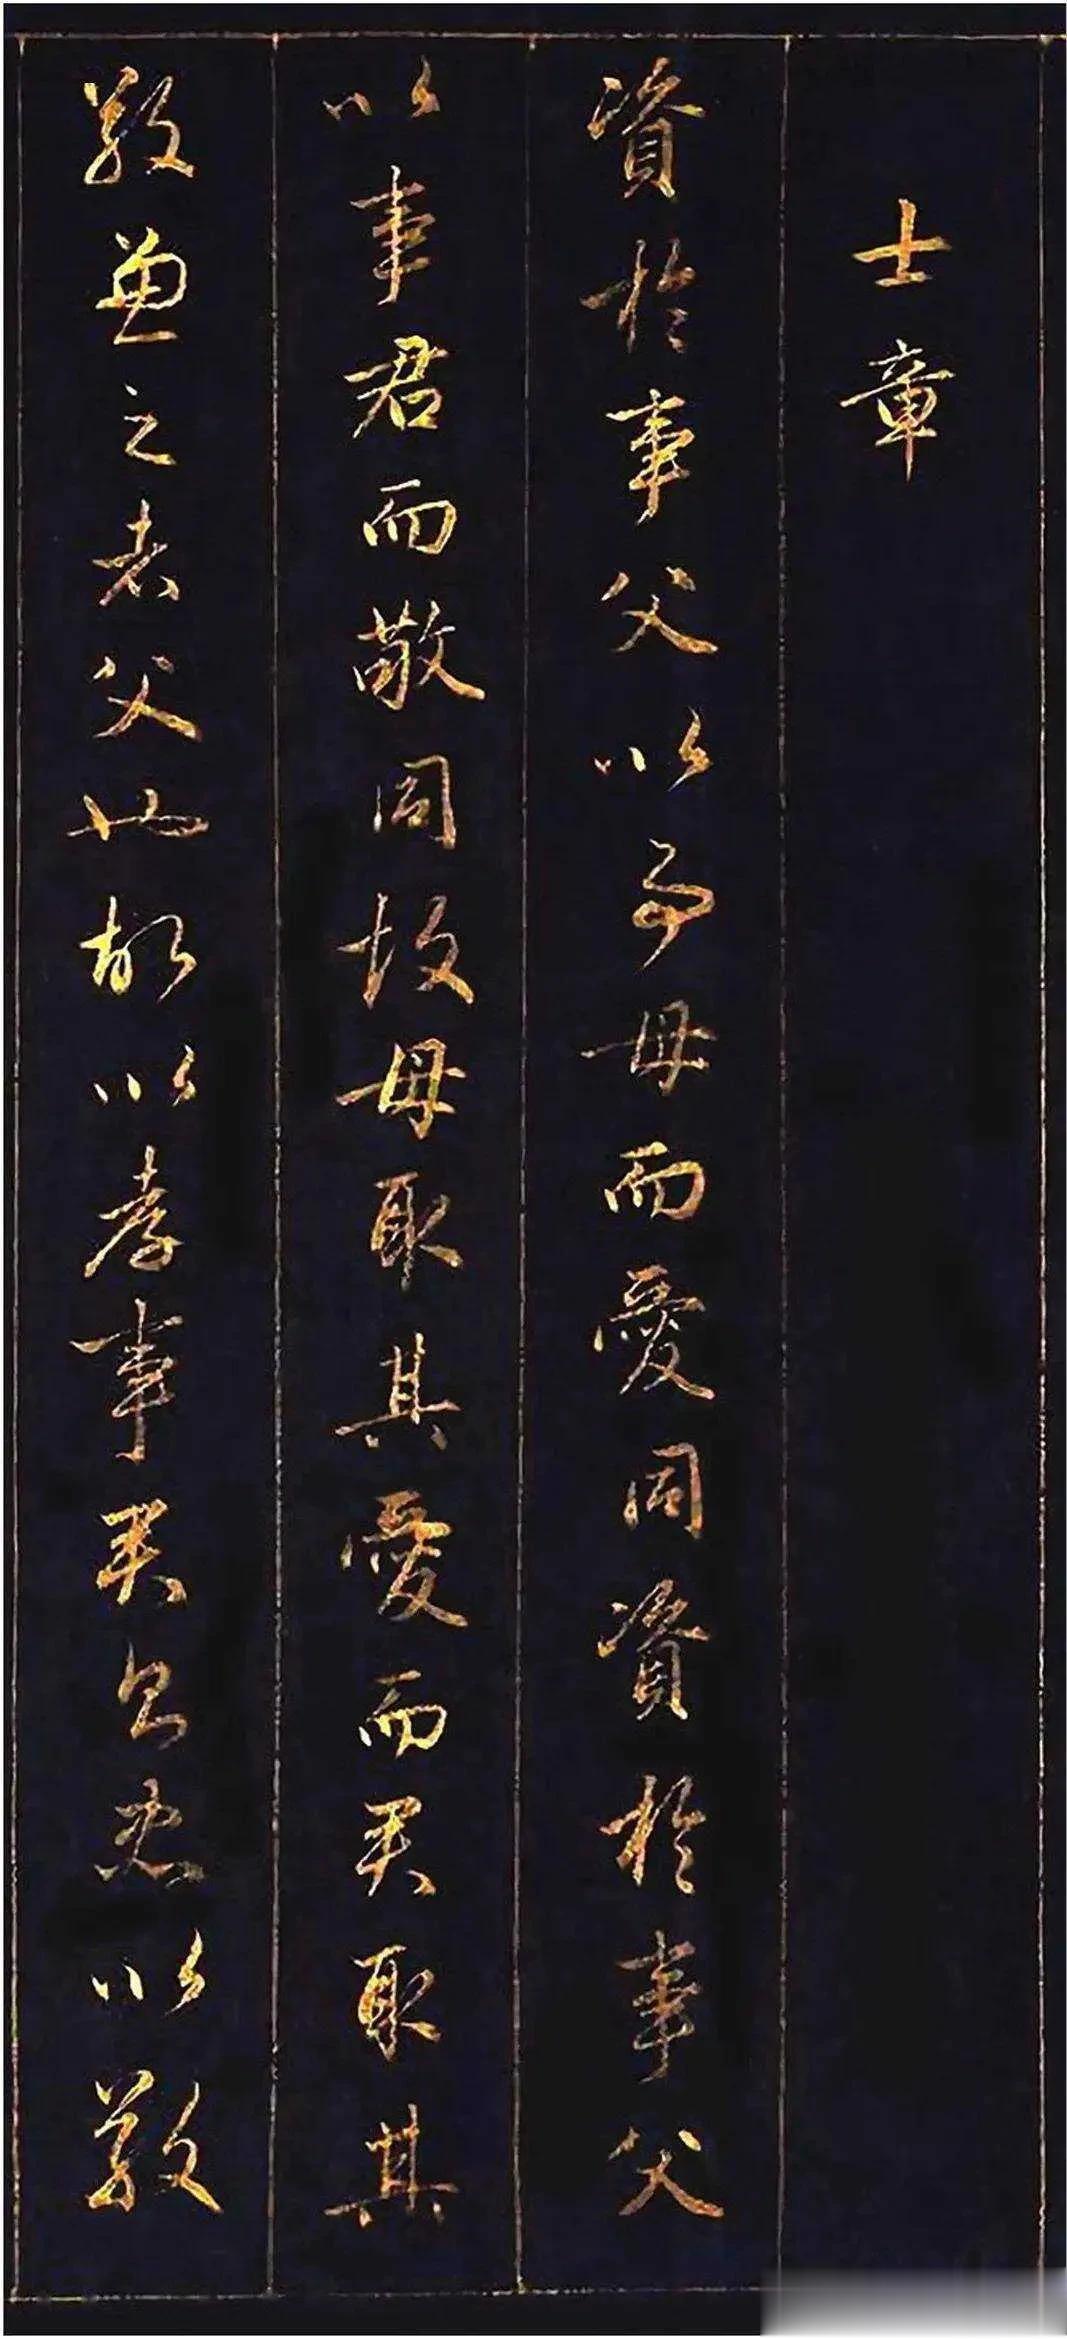 士章
資於事父以事母而愛同資於事父
以事君而敬同故母取其愛而君取其
敬兼之者父也故以孝事君則忠以敬